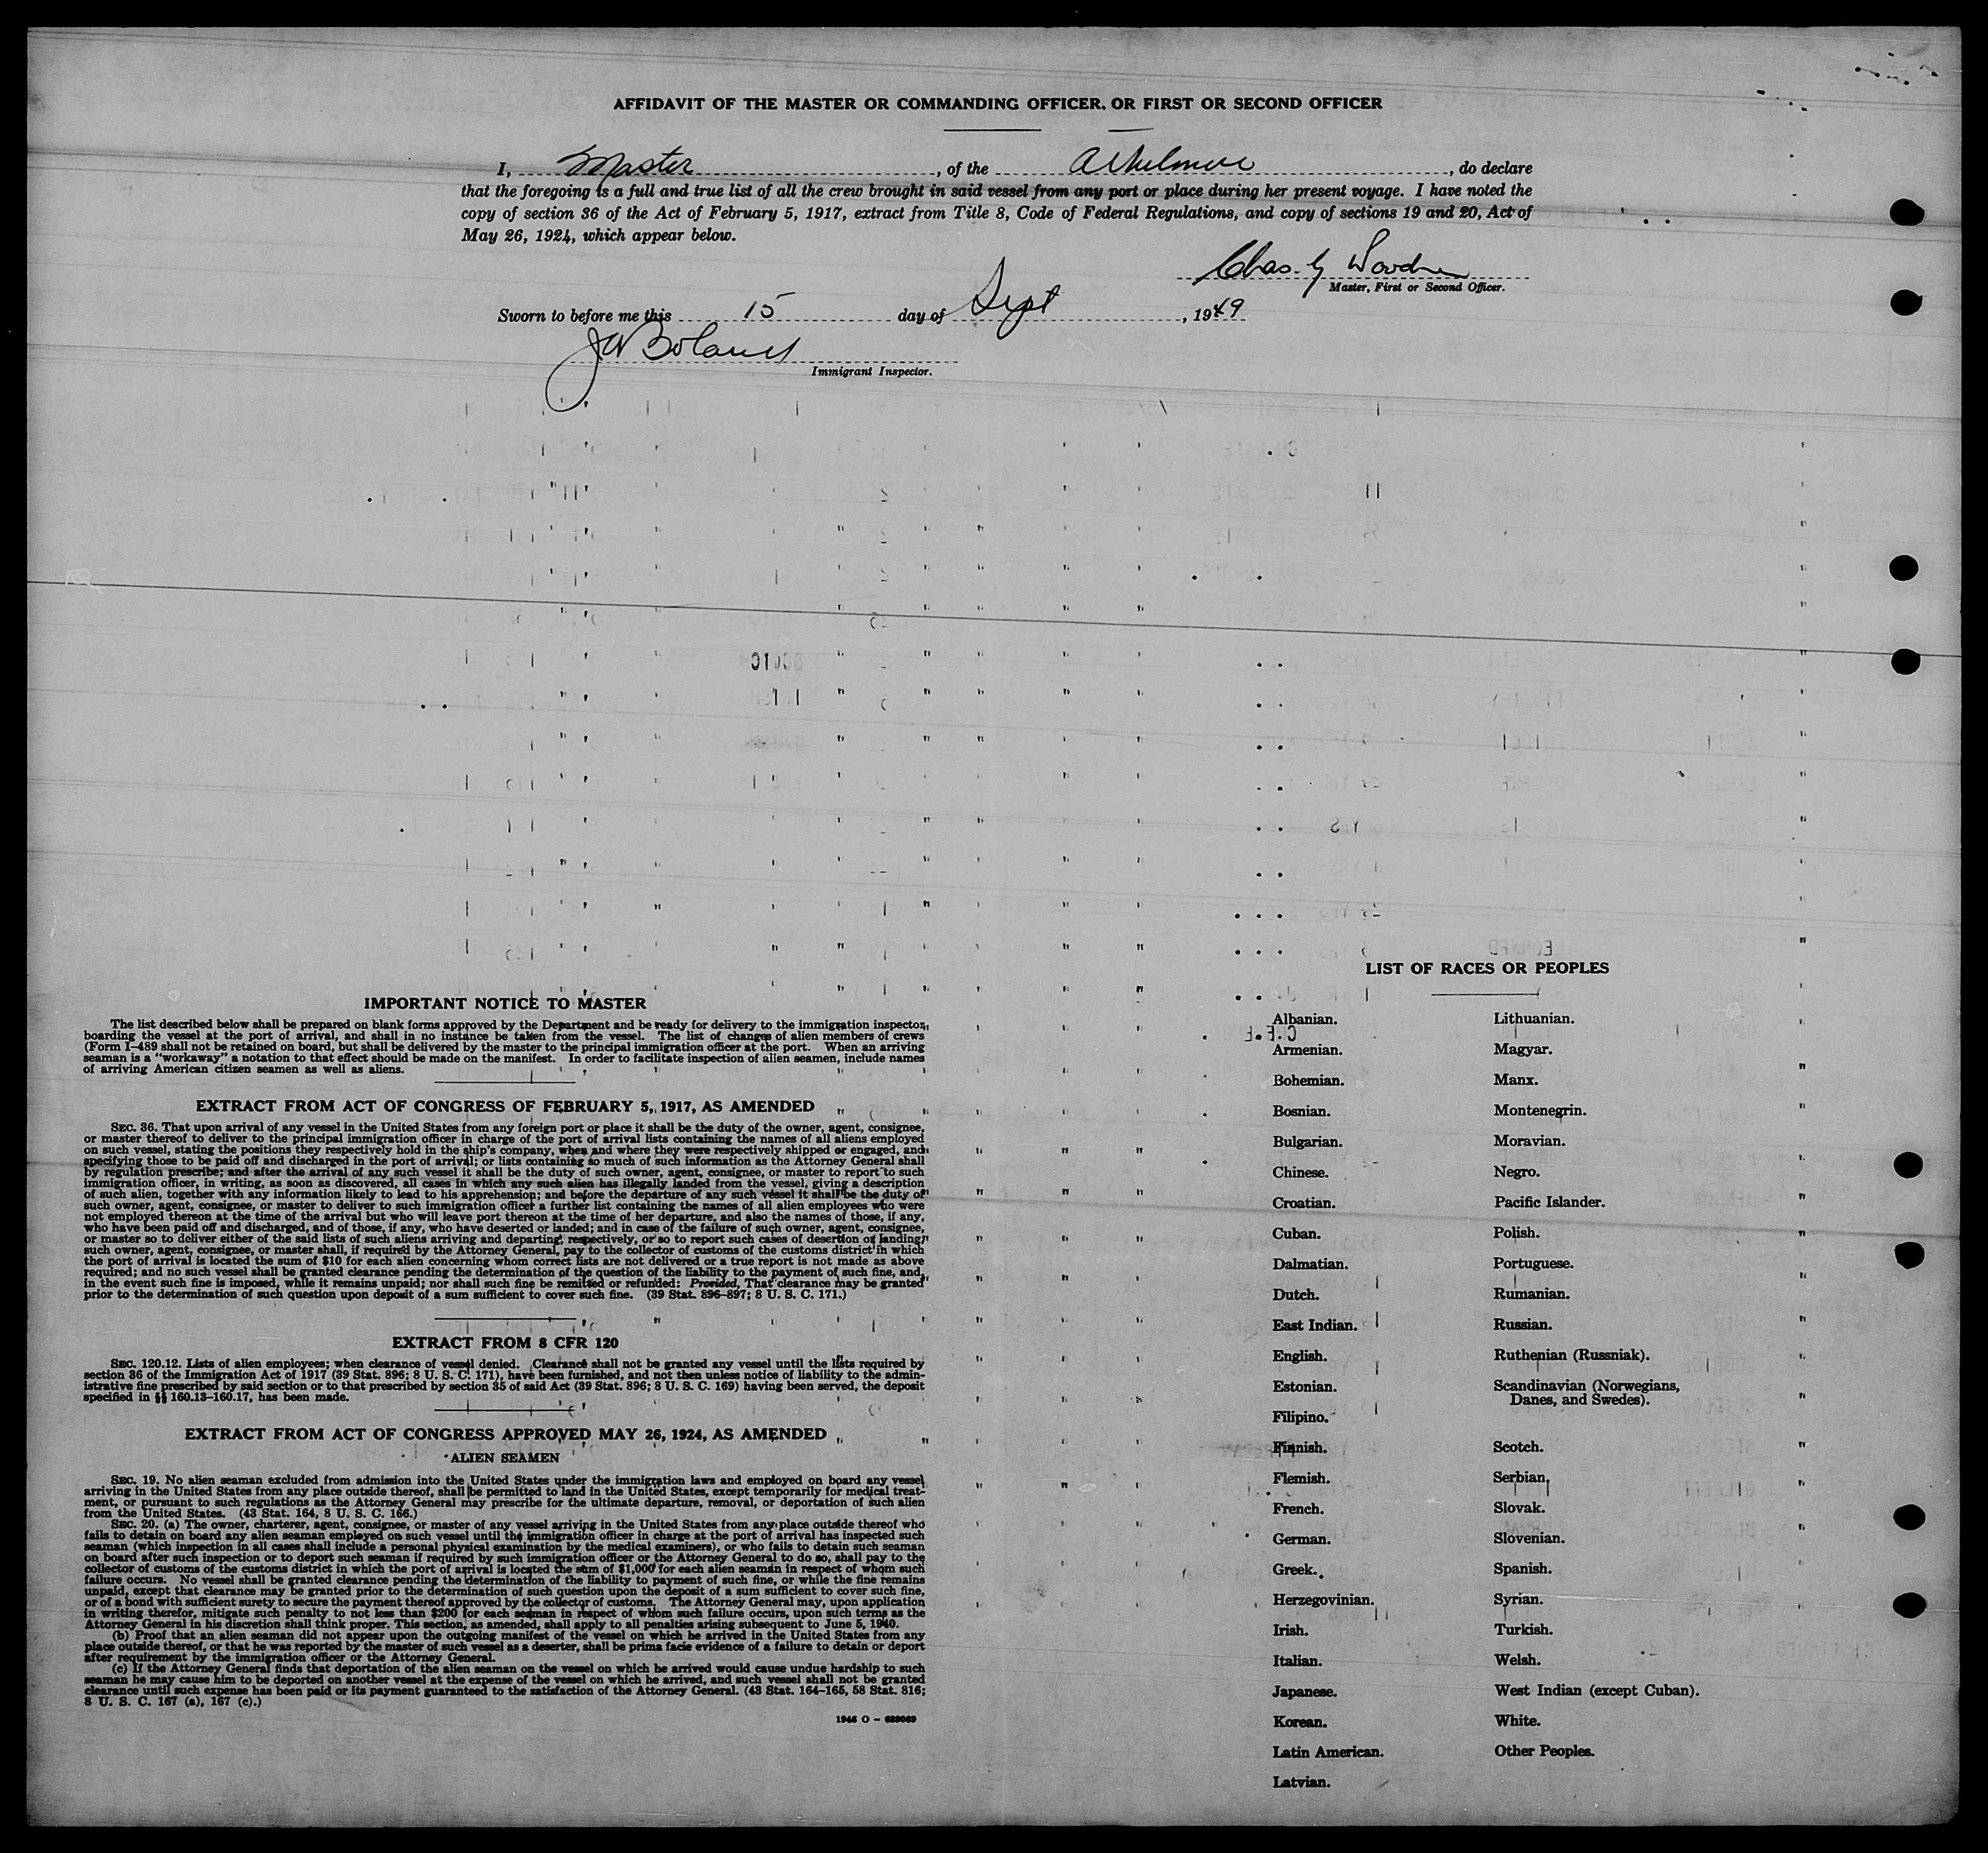 AFFIDAVIT OF THE MASTER OR COMMANDING OFFICER, OR FIRST OR SECOND OFFICER
I, Master, of the Athelmere, do declare
that the foregoing is a full and true list of all the crew brought in said vessel from any port or place during her present voyage. I have noted the
copy of section 36 of the Act of February 5, 1917, extract from Title 8, Code of Federal Regulations, and copy of sections 19 and 20, Act of
May 26, 1924, which appear below.
Chas. G
Master, First or Second Officer.
Sworn to before me this 15 day of Sept, 1949
Immigrant Inspector.
IMPORTANT NOTICE TO MASTER
The list described below shall be prepared on blank forms approved by the Department and be ready for delivery to the immigration inspector,
boarding the vessel at the port of arrival, and shall in no instance be taken from the vessel. The list of changes of alien members of crews
(Form I-489 shall not be retained on board, but shall be delivered by the master to the principal immigration officer at the port. When an arriving
seaman is a "workaway" a notation to that effect should be made on the manifest. In order to facilitate inspection of alien seamen, include names
of arriving American citizen seamen as well as aliens.
EXTRACT FROM ACT OF CONGRESS OF FEBRUARY 5, 1917, AS AMENDED
SEC. 36. That upon arrival of any vessel in the United States from any foreign port or place it shall be the duty of the owner, agent, consignee,
or master thereof to deliver to the principal immigration officer in charge of the port of arrival lists containing the names of all aliens employed
on such vessel, stating the positions they respectively hold in the ship's company, when and where they were respectively shipped or engaged, and
specifying those to be paid off and discharged in the port of arrival; or lists containing so much of such information as the Attorney General shall
by regulation prescribe; and after the arrival of any such vessel it shall be the duty of such owner, agent, consignee, or master to report to such
immigration officer, in writing, as soon as discovered, all cases in which any such alien has illegally landed from the vessel, giving a description
of such alien, together with any information likely to lead to his apprehension; and before the departure of any such vessel it shall be the duty of
such owner, agent, consignee, or master to deliver to such immigration officer a further list containing the names of all alien employees who were
not employed thereon at the time of the arrival but who will leave port thereon at the time of her departure, and also the names of those, if any,
who have been paid off and discharged, and of those, if any, who have deserted or landed; and in case of the failure of such owner, agent, consignee,
or master so to deliver either of the said lists of such aliens arriving and departing, respectively, or so to report such cases of desertion or landing,
such owner, agent, consignee, or master shall, if required by the Attorney General, pay to the collector of customs of the customs district in which
the port of arrival is located the sum of $10 for each alien concerning whom correct lists are not delivered or a true report is not made as above
required; and no such vessel shall be granted clearance pending the determination of the question of the liability to the payment of such fine, and,
in the event such fine is imposed, while it remains unpaid; nor shall such fine be remitted or refunded: Provided, That clearance may be granted
prior to the determination of such question upon deposit of a sum sufficient to cover such fine. (39 Stat. 896-897; 8 U. S. C. 171.)
EXTRACT FROM 8 CFR 120
SEC. 120.12. Lists of alien employees; when clearance of vessel denied. Clearance shall not be granted any vessel until the lists required by
section 36 of the Immigration Act of 1917 (39 Stat. 896; 8 U. S. C. 171), have been furnished, and not then unless notice of liability to the admin-
istrative fine prescribed by said section or to that prescribed by section 35 of said Act (39 Stat. 896; 8 U. S. C. 169) having been served, the deposit
specified in §§ 160.13-160.17, has been made.
EXTRACT FROM ACT OF CONGRESS APPROVED MAY 26, 1924, AS AMENDED
ALIEN SEAMEN
SEC. 19. No alien seaman excluded from admission into the United States under the immigration laws and employed on board any vessel
arriving in the United States from any place outside thereof, shall be permitted to land in the United States, except temporarily for medical treat-
ment, or pursuant to such regulations as the Attorney General may prescribe for the ultimate departure, removal, or deportation of such alien
from the United States. (43 Stat. 164, 8 U. S. C. 166.)
SEC. 20. (a) The owner, charterer, agent, consignee, or master of any vessel arriving in the United States from any place outside thereof who
fails to detain on board any alien seaman employed on such vessel until the immigration officer in charge at the port of arrival has inspected such
seaman (which inspection in all cases shall include a personal physical examination by the medical examiners), or who fails to detain such seaman
on board after such inspection or to deport such seaman if required by such immigration officer or the Attorney General to do so, shall pay to the
collector of customs of the customs district in which the port of arrival is located the sum of $1,000 for each alien seaman in respect of whom such
failure occurs. No vessel shall be granted clearance pending the determination of the liability to payment of such fine, or while the fine remains
unpaid, except that clearance may be granted prior to the determination of such question upon the deposit of a sum sufficient to cover such fine,
or of a bond with sufficient surety to secure the payment thereof approved by the collector of customs. The Attorney General may, upon application
in writing therefor, mitigate such penalty to not less than $200 for each seaman in respect of whom such failure occurs, upon such terms as the
Attorney General in his discretion shall think proper. This section, as amended, shall apply to all penalties arising subsequent to June 5, 1940.
(b) Proof that an alien seaman did not appear upon the outgoing manifest of the vessel on which he arrived in the United States from any
place outside thereof, or that he was reported by the master of such vessel as a deserter, shall be prima facie evidence of a failure to detain or deport
after requirement by the immigration officer or the Attorney General.
(c) If the Attorney General finds that deportation of the alien seaman on the vessel on which he arrived would cause undue hardship to such
seaman he may cause him to be deported on another vessel at the expense of the vessel on which he arrived, and such vessel shall not be granted
clearance until such expense has been paid or its payment guaranteed to the satisfaction of the Attorney General. (43 Stat. 164-165, 58 Stat. 816;
8 U. S. C. 167 (a), 167 (c).)
1946 O - 689069
LIST OF RACES OR PEOPLES
Albanian.
Armenian.
Bohemian.
Bosnian.
Bulgarian.
Chinese.
Croatian.
Cuban.
Dalmatian.
Dutch.
East Indian.
English.
Estonian.
Filipino.
Finnish.
Flemish.
French.
German.
Greek.
Herzegovinian.
Irish.
Italian.
Japanese.
Korean.
Latin American.
Latvian.
Lithuanian.
Magyar.
Manx.
Montenegrin.
Moravian.
Negro.
Pacific Islander.
Polish.
Portuguese.
Rumanian.
Russian.
Ruthenian (Russniak).
Scandinavian (Norwegians,
Danes, and Swedes).
Scotch.
Serbian.
Slovak.
Slovenian.
Spanish.
Syrian.
Turkish.
Welsh.
West Indian (except Cuban).
White.
Other Peoples.